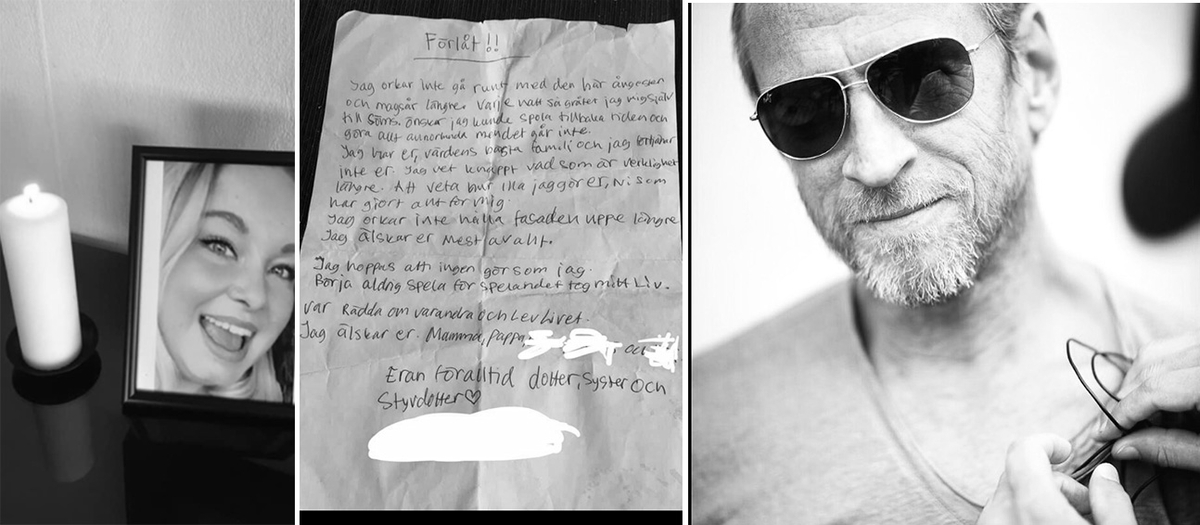 Förlåt!!
Jag orkar inte gå runt med den här ångesten
och magsår längre. Varje natt så gråter jag mig själv
till sömns. önskar jag kunde spola tillbaka tiden och
göra allt annorlunda men det går inte.
Jag har er, världens bästa familj och jag förtjänar
inte er. Jag vet knappt vad som är verklighet
längre. Att veta hur illa jag gör er, ni som
har gjort allt för mig.
Jag orkar inte hålla fasaden uppe längre
Jag älskar er mest av allt.
Jag hoppas att ingen gör som jag.
Börja aldrig spela för spelandet tog mitt Liv.
var Rädda om varandra och Lev Livet.
Jag älskar er. Mamma, Pappa, och
Eran föralltid dotter, Syster och
Styvdotter♡